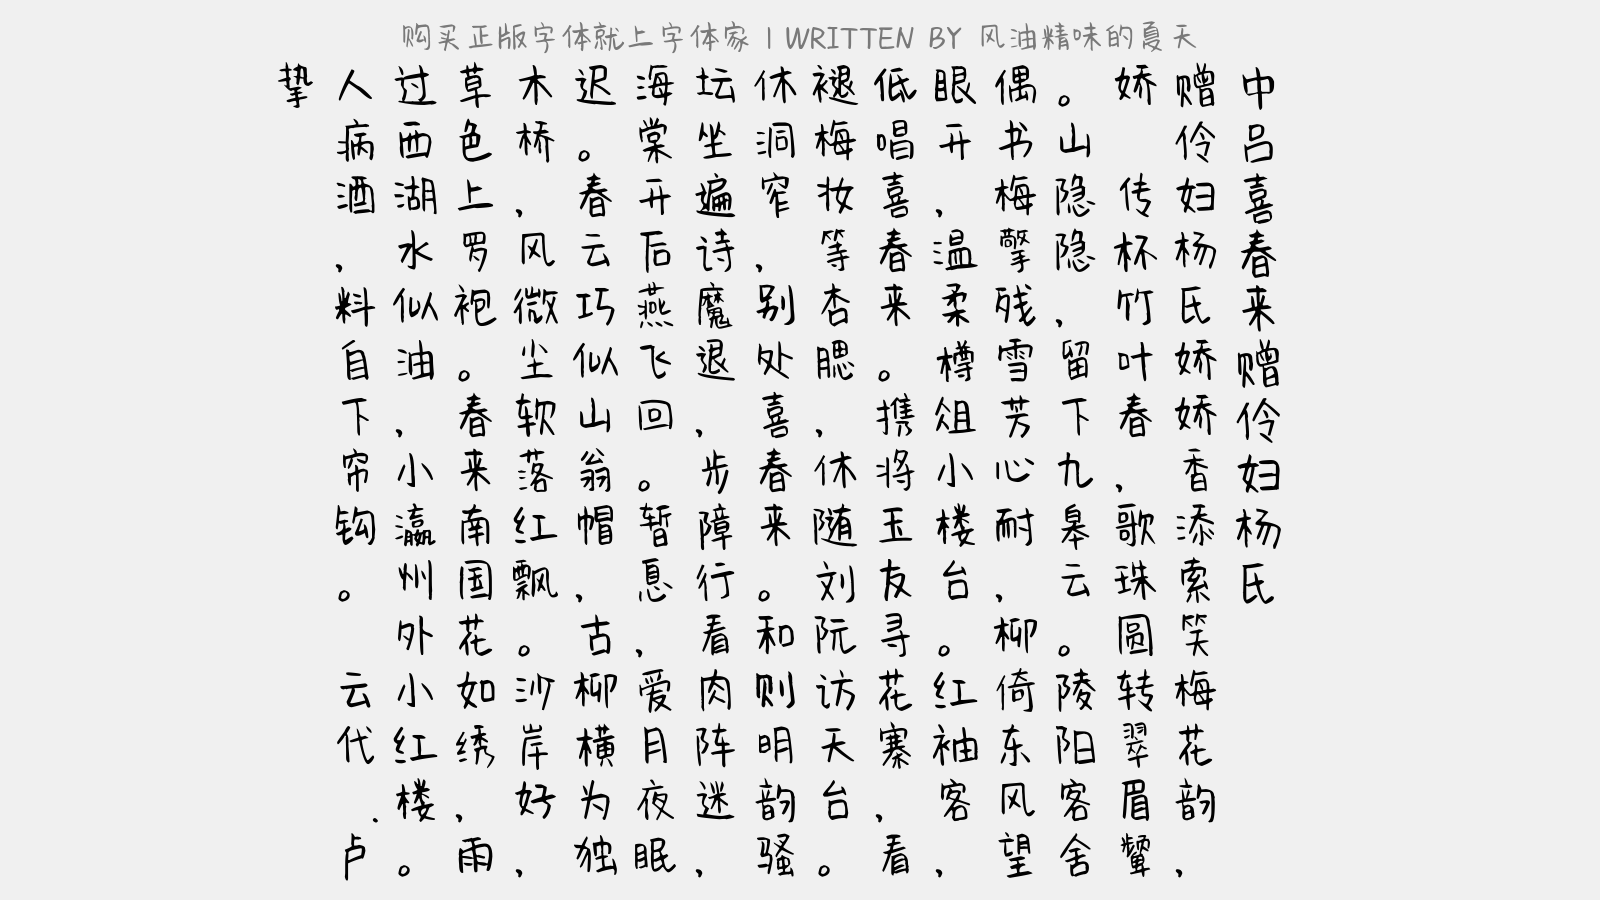 购买正版字体就上字体家 | WRITTEN BY 风油精味的夏天
中吕喜春来赠伶妇杨氏
赠伶妇杨氏娇娇香添索笑梅花韵，
娇 传杯竹叶春，歌珠圆转翠眉颦
。山隐隐，留下九皋云。陵阳客舍
偶书梅擎残雪芳心耐，柳倚东风望
眼开，温柔樽俎小楼台。红袖客，
低唱喜春来。携将玉友寻花寨，看
褪梅妆等杏腮。休随刘阮访天台。
休洞窄，别处喜春来。和则明韵骚
坛坐遍诗魔退，步障行看肉阵迷，
海棠开后燕飞回。暂息，爱月夜眠
迟。春云巧似山翁帽，古柳横为独
木桥，风微尘软落红飘。沙岸好，
草色上罗袍。春来南国花如绣，雨
过西湖水似油，小瀛州外小红楼。
人病酒，料自下帘钩。 云代.卢
挚